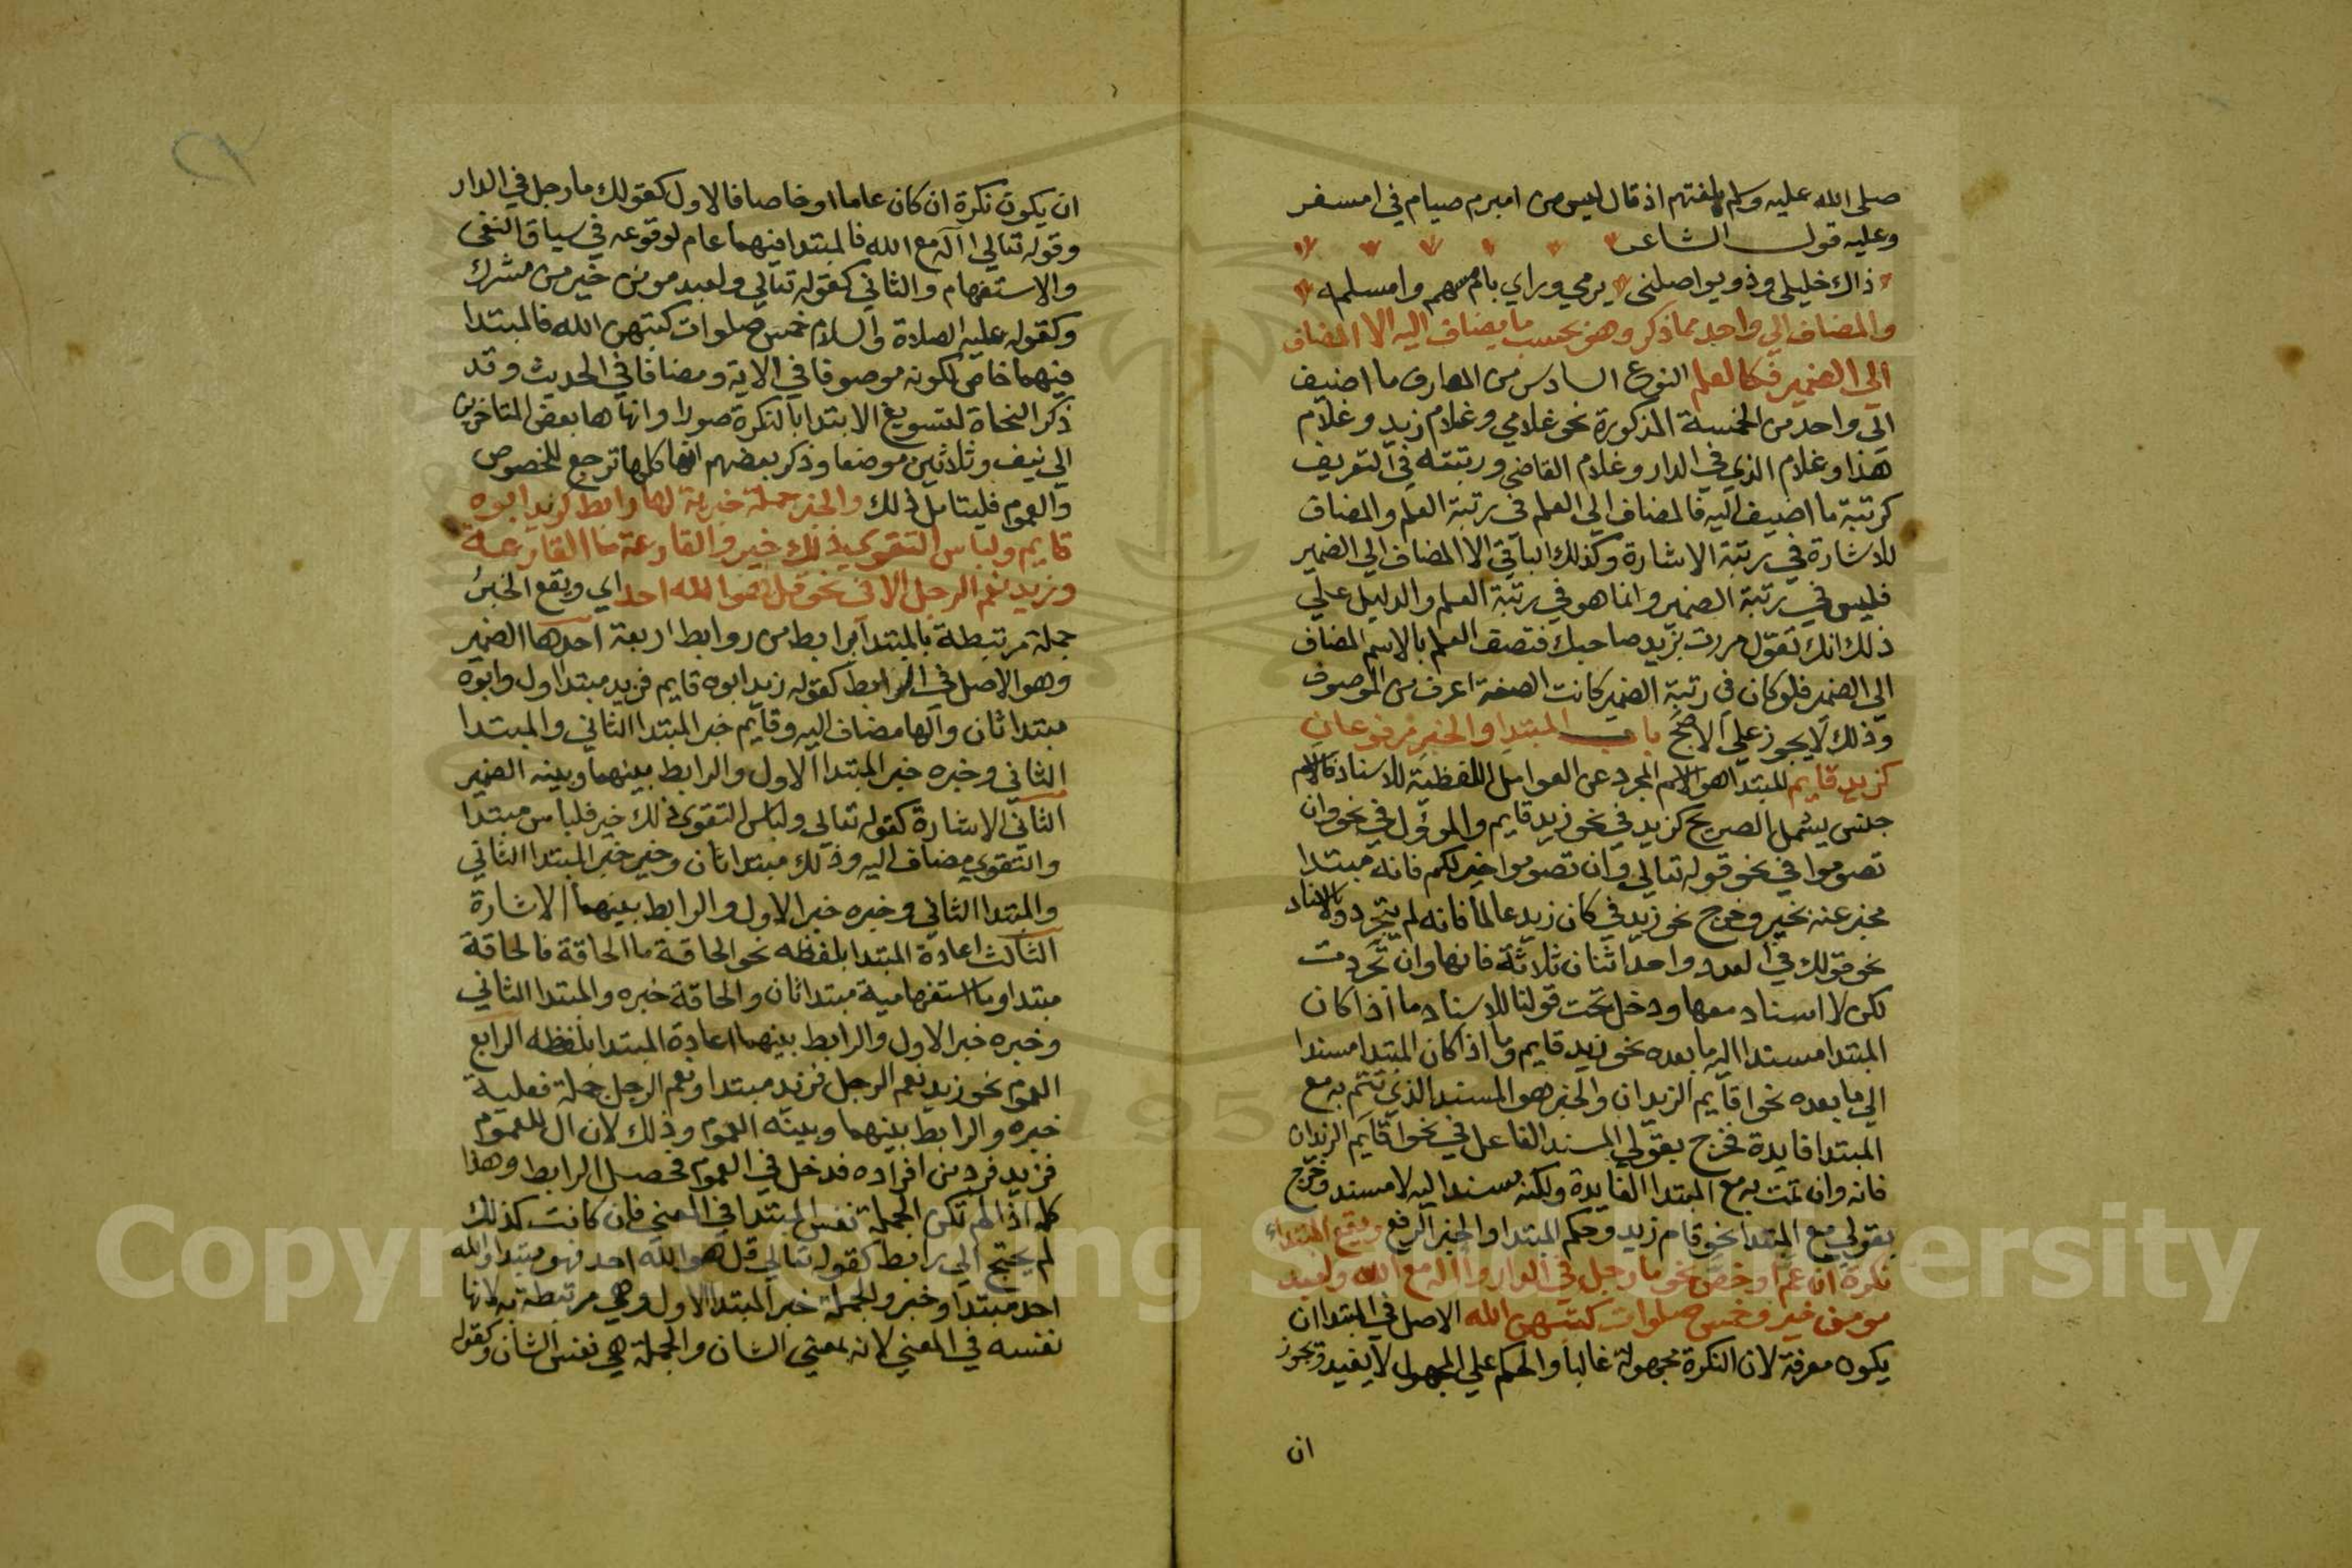 صلى الله عليه وسلم بلغتهم اذ قال ليس من امبرم صيام في امسفر
وعليه قول الشاعر
ذاك خليلي وذو يواصلني يرمي وراي بامسهم وامسلمه
والمضاف الي واحد مما ذكر وهو بحسب ما يضاف اليه الا المضاف
الي الضمير فكالعلم النوع السادس من المعارف ما اضيف
الي واحد من الخمسة المذكورة نحو غلامي وغلام زيد وغلام
هذا وغلام الذي في الدار وغلام القاضي ورتبته في التعريف
كرتبة ما اضيف اليه فالمضاف الي العلم في رتبة العلم والمضاف
للاشارة في رتبة الاشارة وكذلك الباقي الا المضاف الي الضمير
فليس في رتبة الضمير وانما هو في رتبة العلم والدليل علي
ذلك انك تقول مررت بزيد صاحبك فتصف العلم بالاسم المضاف
الي الضمير فلو كان في رتبة الضمير كانت الصفة اعرف من الموصوف
وذلك لا يجوز علي الاصح باب المبتدا والخبر مرفوعان
كزيد قايم المبتدا هو الاسم المجرد عن العوامل اللفظية للاسناد فالاسم
جنس يشمل الصريح كزيد في نحو زيد قايم والمؤول في نحو وان
تصوموا في نحو قوله تعالي وان تصوموا خير لكم فانه مبتدا
مخبر عنه بخير وخرج نحو زيد في كان زيد عالما فانه لم يتجرد وبالاسناد
نحو قولك في العدد واحد اثنان ثلاثة فانها وان تجردت
لكن لا اسناد معها ودخل تحت قولنا للاسناد ما اذا كان
المبتدا مسندا اليه ما بعده نحو زيد قايم وما اذا كان المبتدا مسندا
الي ما بعده نحو اقايم الزيدان والخبر هو المسند الذي تتم به مع
المبتدا فايدة فخرج بقولي المسند الفاعل في نحو اقايم الزيدان
فانه وان تمت به مع المبتدا الفايدة ولكنه مسند اليه لا مسند وخرج
بقولي مع المبتدا نحو قام زيد وحكم المبتدا والخبر الرفع ويقع المبتداء
نكرة ان عم او خص نحو ما رجل في الدار وأاله مع الله ولعبد
مومن خير وخمس صلوات كتبهن الله الاصل في المبتدا ان
يكون معرفة لان النكرة مجهولة غالبا والحكم علي المجهول لا يفيد ويجوز
ان
ان يكون نكرة ان كان عاما او خاصا فالاول كقولك ما رجل في الدار
وقوله تعالي أاله مع الله فالمبتدا فيهما عام لوقوعه في سياق النفي
والاستفهام والثاني كقوله تعالي ولعبد مومن خير من مشرك
وكقوله عليه الصلاة والسلام خمس صلوات كتبهن الله فالمبتدا
فيهما خاص لكونه موصوفا في الاية ومضافا في الحديث وقد
ذكر النحاة لتسويغ الابتدا بالنكرة صورا وانهاها بعض المتاخرين
الي نيف وثلاثين موضعا وذكر بعضهم انها كلها ترجع للخصوص
والعموم فليتامل ذلك والخبر جملة خبرية لها رابط كزيد ابوه
قايم ولباس التقوي ذلك خير والقارعة ما القارعة
وزيد نعم الرجل الا في نحو قل هو الله احد اي ويقع الخبر
جملة مرتبطة بالمبتدا برابط من روابط اربعة احدها الضمير
وهو الاصل في الرابط كقوله زيد ابوه قايم فزيد مبتدا اول وابوه
مبتدا ثان والها مضاف اليه وقايم خبر المبتدا الثاني والمبتدا
الثاني وخبره خبر المبتدا الاول والرابط بينهما وبينه الضمير
الثاني الاشارة كقوله تعالي ولباس التقوي ذلك خير فلباس مبتدا
والتقوي مضاف اليه وذلك مبتدا ثان وخير خبر المبتدا الثاني
والمبتدا الثاني وخبره خبر الاول والرابط بينهما الاشارة
الثالث اعادة المبتدا بلفظه نحو الحاقة ما الحاقة فالحاقة
مبتدا وما استفهامية مبتدا ثان والحاقة خبره والمبتدا الثاني
وخبره خبر الاول والرابط بينهما اعادة المبتدا بلفظه الرابع
العموم نحو زيد نعم الرجل فزيد مبتدا ونعم الرجل جملة فعلية
خبره والرابط بينهما وبينه العموم وذلك لان ال للعموم
فزيد فرد من افراده فدخل في العموم فحصل الرابط وهذا
كله اذا لم تكن الجملة نفس المبتدا في المعني فان كانت كذلك
لم يحتج الي رابط كقوله تعالي قل هو الله احد فهو مبتدا والله
احد مبتدا وخبر والجملة خبر المبتدا الاول وهي مرتبطة به لانها
نفسه في المعني لانه بمعني الشان والجملة هي نفس الشان وكقوله